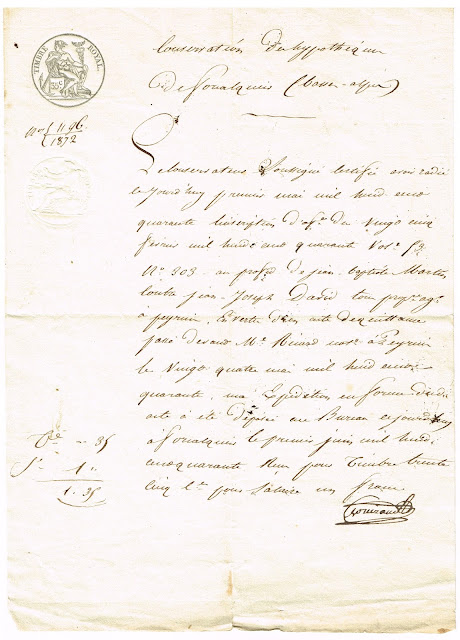 TIMBRE ROYAL
35 c
Conservation des hypothèques
De Forcalquier (Basses-alpes)
Nos 1196
1872
Le Conservateur Soussigné certifie avoir radié
le jourd'huy premier mai mil huit cent
quarante l'inscription d'off. du Vingt cinq
fevrier mil huit cent quarante Vol. 
N° 203 au profit de jean-baptiste Martin
Contre jean-Joseph David tous prop.
à peyruis, En vertu d'un acte de quittance
passé devant Me. Ricard not. à Peyruis
le Vingt quatre mai mil huit cent
quarante, une Expédition en forme dudit
acte à eté déposée au Bureau ce jourd'huy
à Forcalquier le premier juin mil huit
cent quarante Reçu pour Timbre trente
cinq c. pour Salaire un franc
35
1"
1. 35